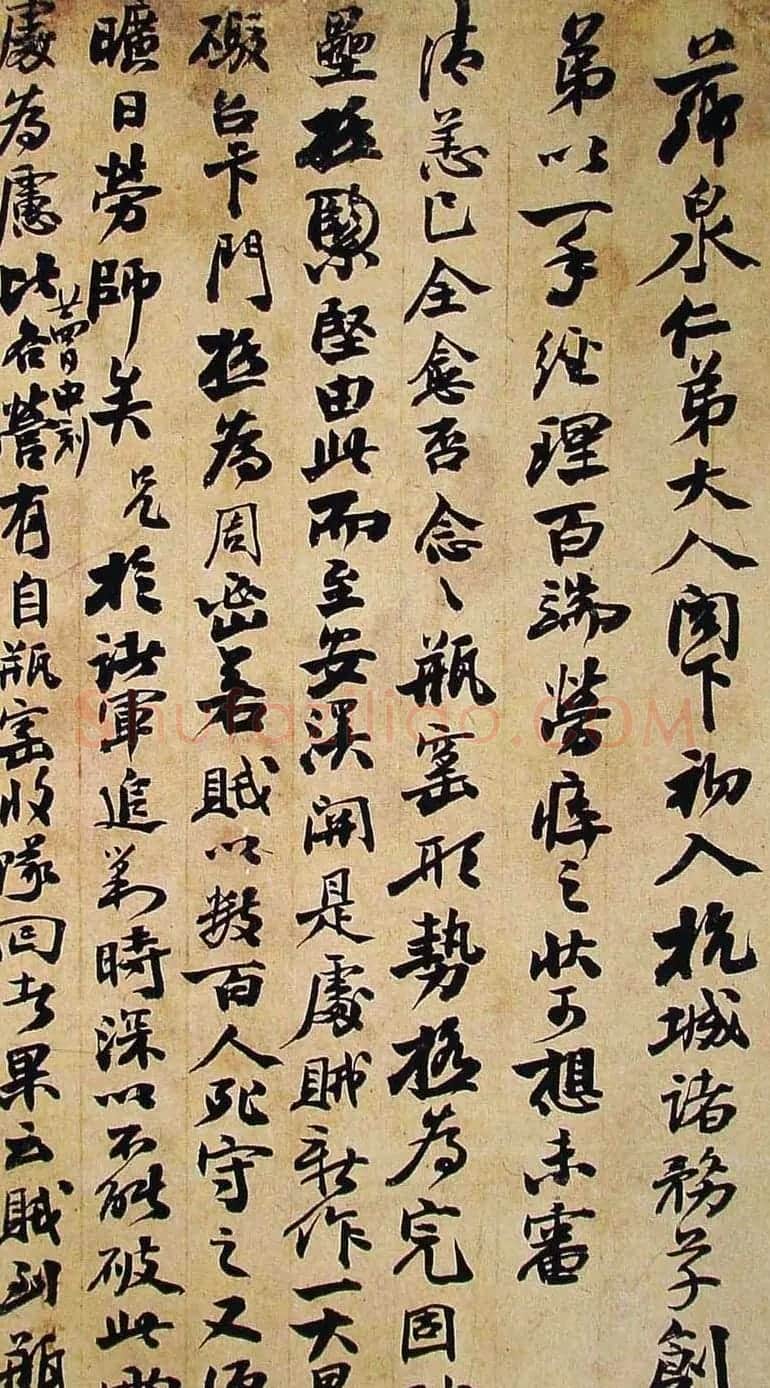 薌泉仁弟大人閣下初入杭城諸務草創
弟以一手經理百端勞瘁之狀可想未審
清恙已全愈否念〻瓶窰形勢極為完固
壘極緊堅由此而至安溪關是處賊新作一大壘
礮台卡門極為周密若賊以數百人死守之又須
曠日勞師矣兄於諸軍追剿時深以不能破此
廿四日申刻
處為慮比各營有自瓶窰收隊回者果云賊到瓶
Shufaziliao.COM